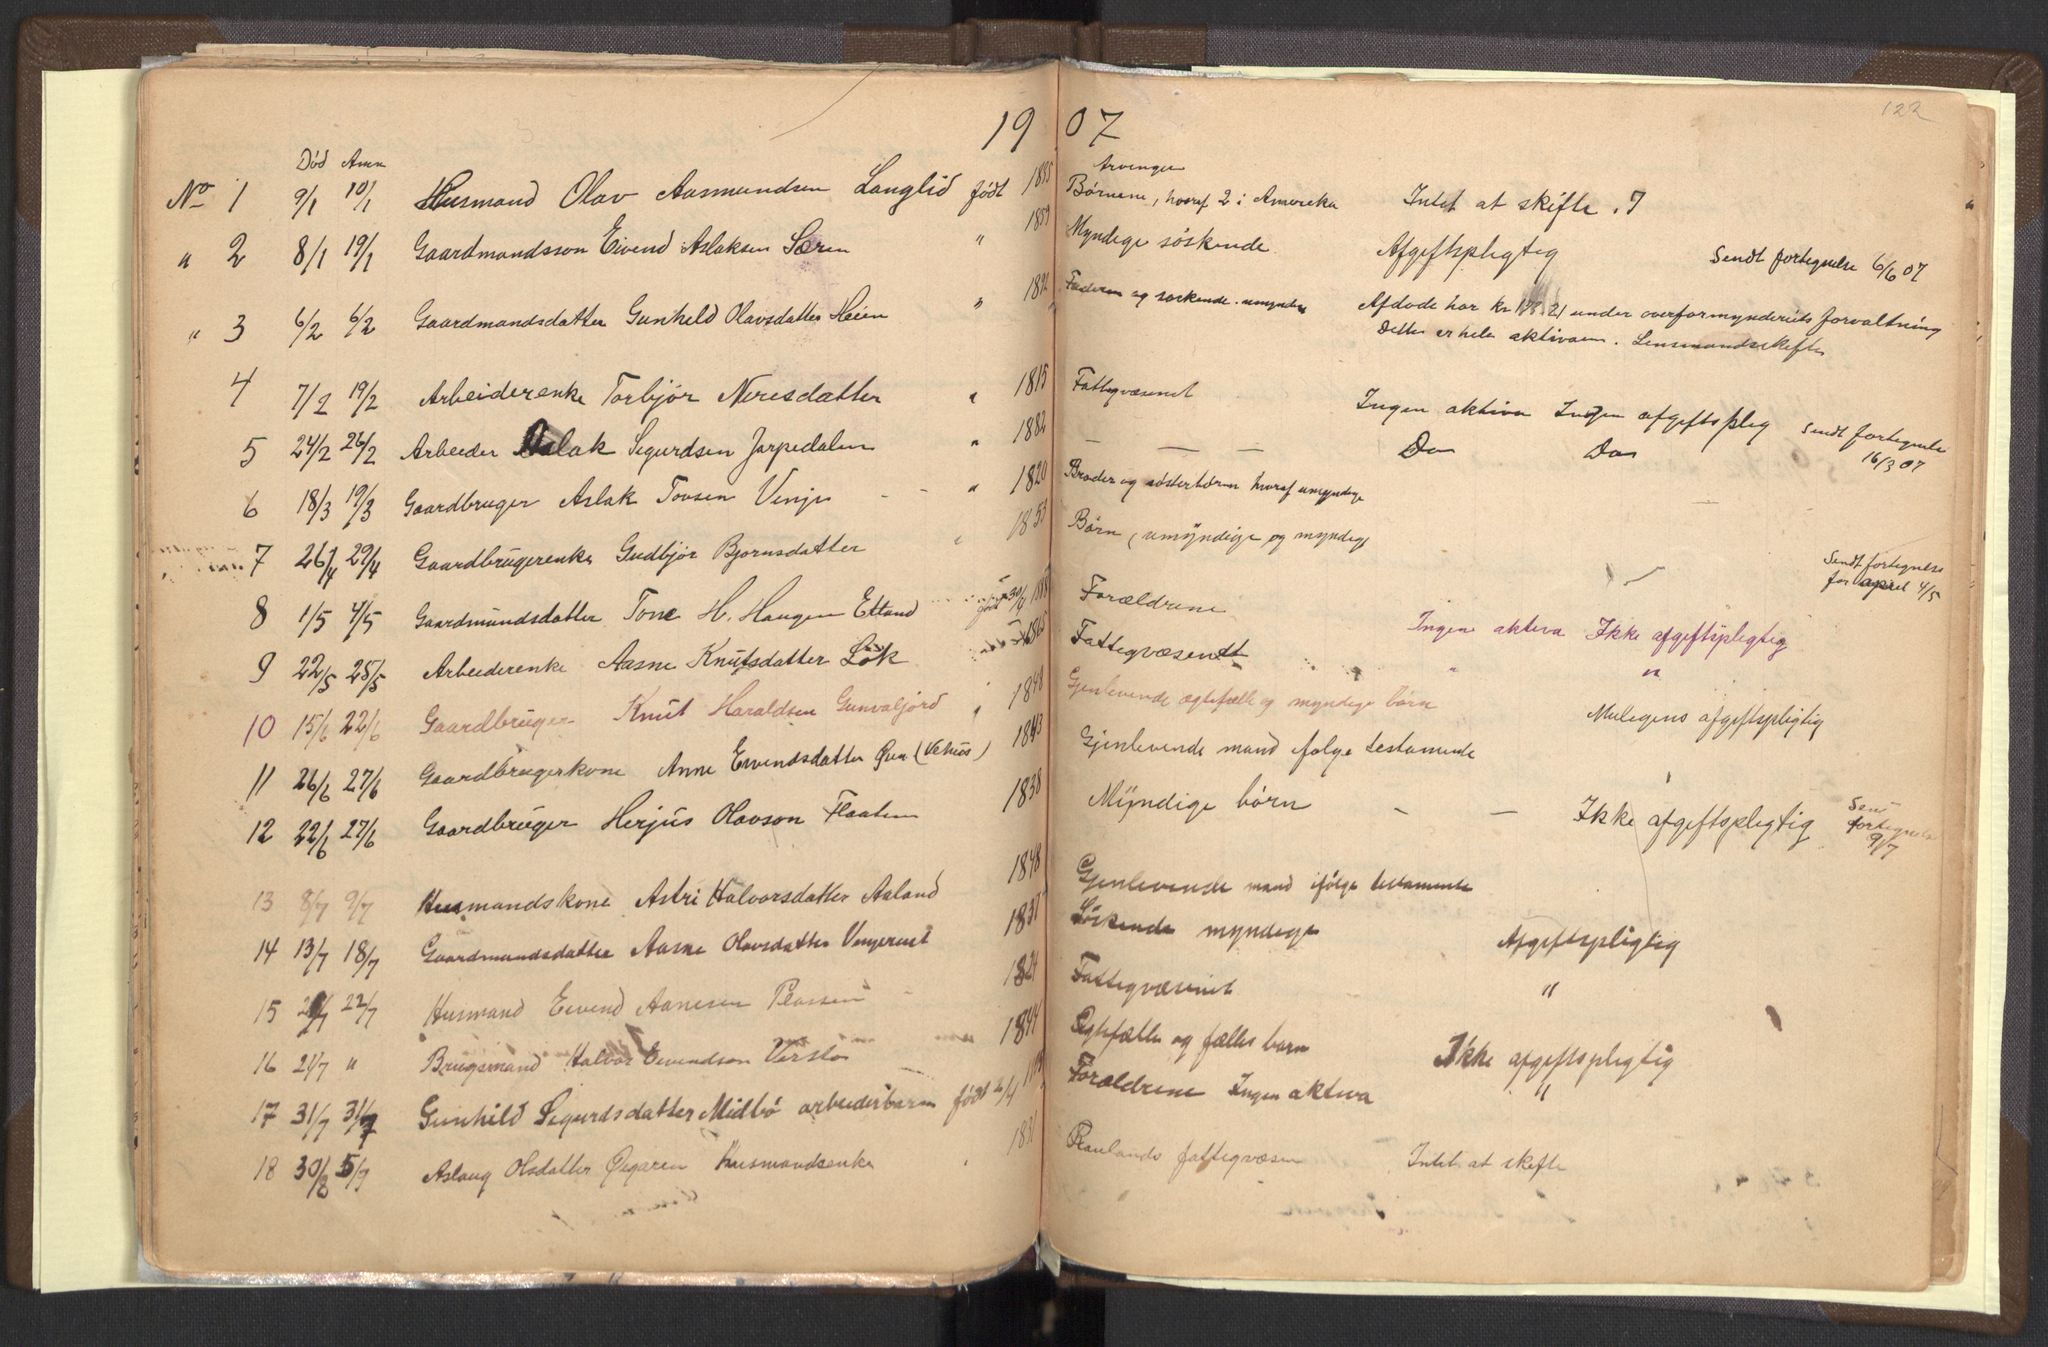 122
19 07
Død Anm Arvinger
No 1 9/1 10/1 Husmand Olav Aasmundsen Langlid født 1835 Børnene, hvoraf 2 i Amerika Intet at skifte.
" 2 8/1 19/1 Gaardmandssøn Eivend Aslaksen Særen " 1859 Myndige søskende Afgiftspligtig Sendt fortegnelse 6/6 07
" 3 6/2 6/2 Gaardmandsdatter Gunhild Olavsdatter Heien " Faderen og søskende umyndige Afdøde har kr under overformynderiets forvaltning
Dette er hele aktivaen. Lensmandsskifte
4 7/2 19/2 Arbeiderenke Torbjør Neresdatter " 1815 Fattigvæsenet Ingen aktiva Ingen afgiftsplig
5 24/2 26/2 Arbeider Aslak Sigurdsen Jarpedalen " 1882 — — — Do Do Sendt fortegnelse
16/3 07
6 18/3 19/3 Gaardbruger Aslak Tovsen Vinje - - " 1820 Broder og søsterbørn hvoraf umyndige
7 26/4 29/4 Gaardbrugerenke Gudbjør Bjørnsdatter " 1853 Børn (umyndige og myndige
Sendt fortegnelse
for april 4/5
8 1/5 4/5 Gaardmandsdatter Tone H. Haugen Edland født 30/4 Forældrene Ingen aktiva Ikke afgiftspligtig
9 22/5 25/5 Arbeiderenke Aasne Knutsdatter Løk Fattigvæsenet " "
10 15/6 22/6 Gaardbruger Knut Haraldsen Gunvaljord " 1848 Gjenlevende ægtefælle og myndige børn Muligens afgiftspligtig
11 26/6 27/6 Gaardbrugerkone Anne Eivendsdatter Øien (Vehus) 1843 Gjenlevende mand følge testamente
12 22/6 27/6 Gaardbruger Herjus Olavson Flaaten 1838 Myndige børn — — Ikke afgiftspligtig Sendt
fortegnelse
9/7
13 8/7 9/7 Husmandskone Astri Halvorsdatter Aaland 1848 Gjenlevende mand ifølge testamente
14 13/7 18/7 Gaardmandsdatter Aasne Olavsdatter Vinjerust 1837 Søskende myndige Afgiftspligtig
15 22/7 Husmand Eivend Aanesen Plassen 1824 Fattigvæsenet "
16 21/7 " Brugsmand Halvor Eivendson Versto 1844 Ægtefælle og fælles barn Ikke afgiftspligtig
17 31/7 31/7 Gunhild Sigurdsdatter Midbø arbeiderbarn født 2/4 Forældrene Ingen aktiva "
18 30/8 5/9 Aslaug Olsdatter Øigaren Husmandsenke " 1831 Raulands fattigvæsen Intet at skifte